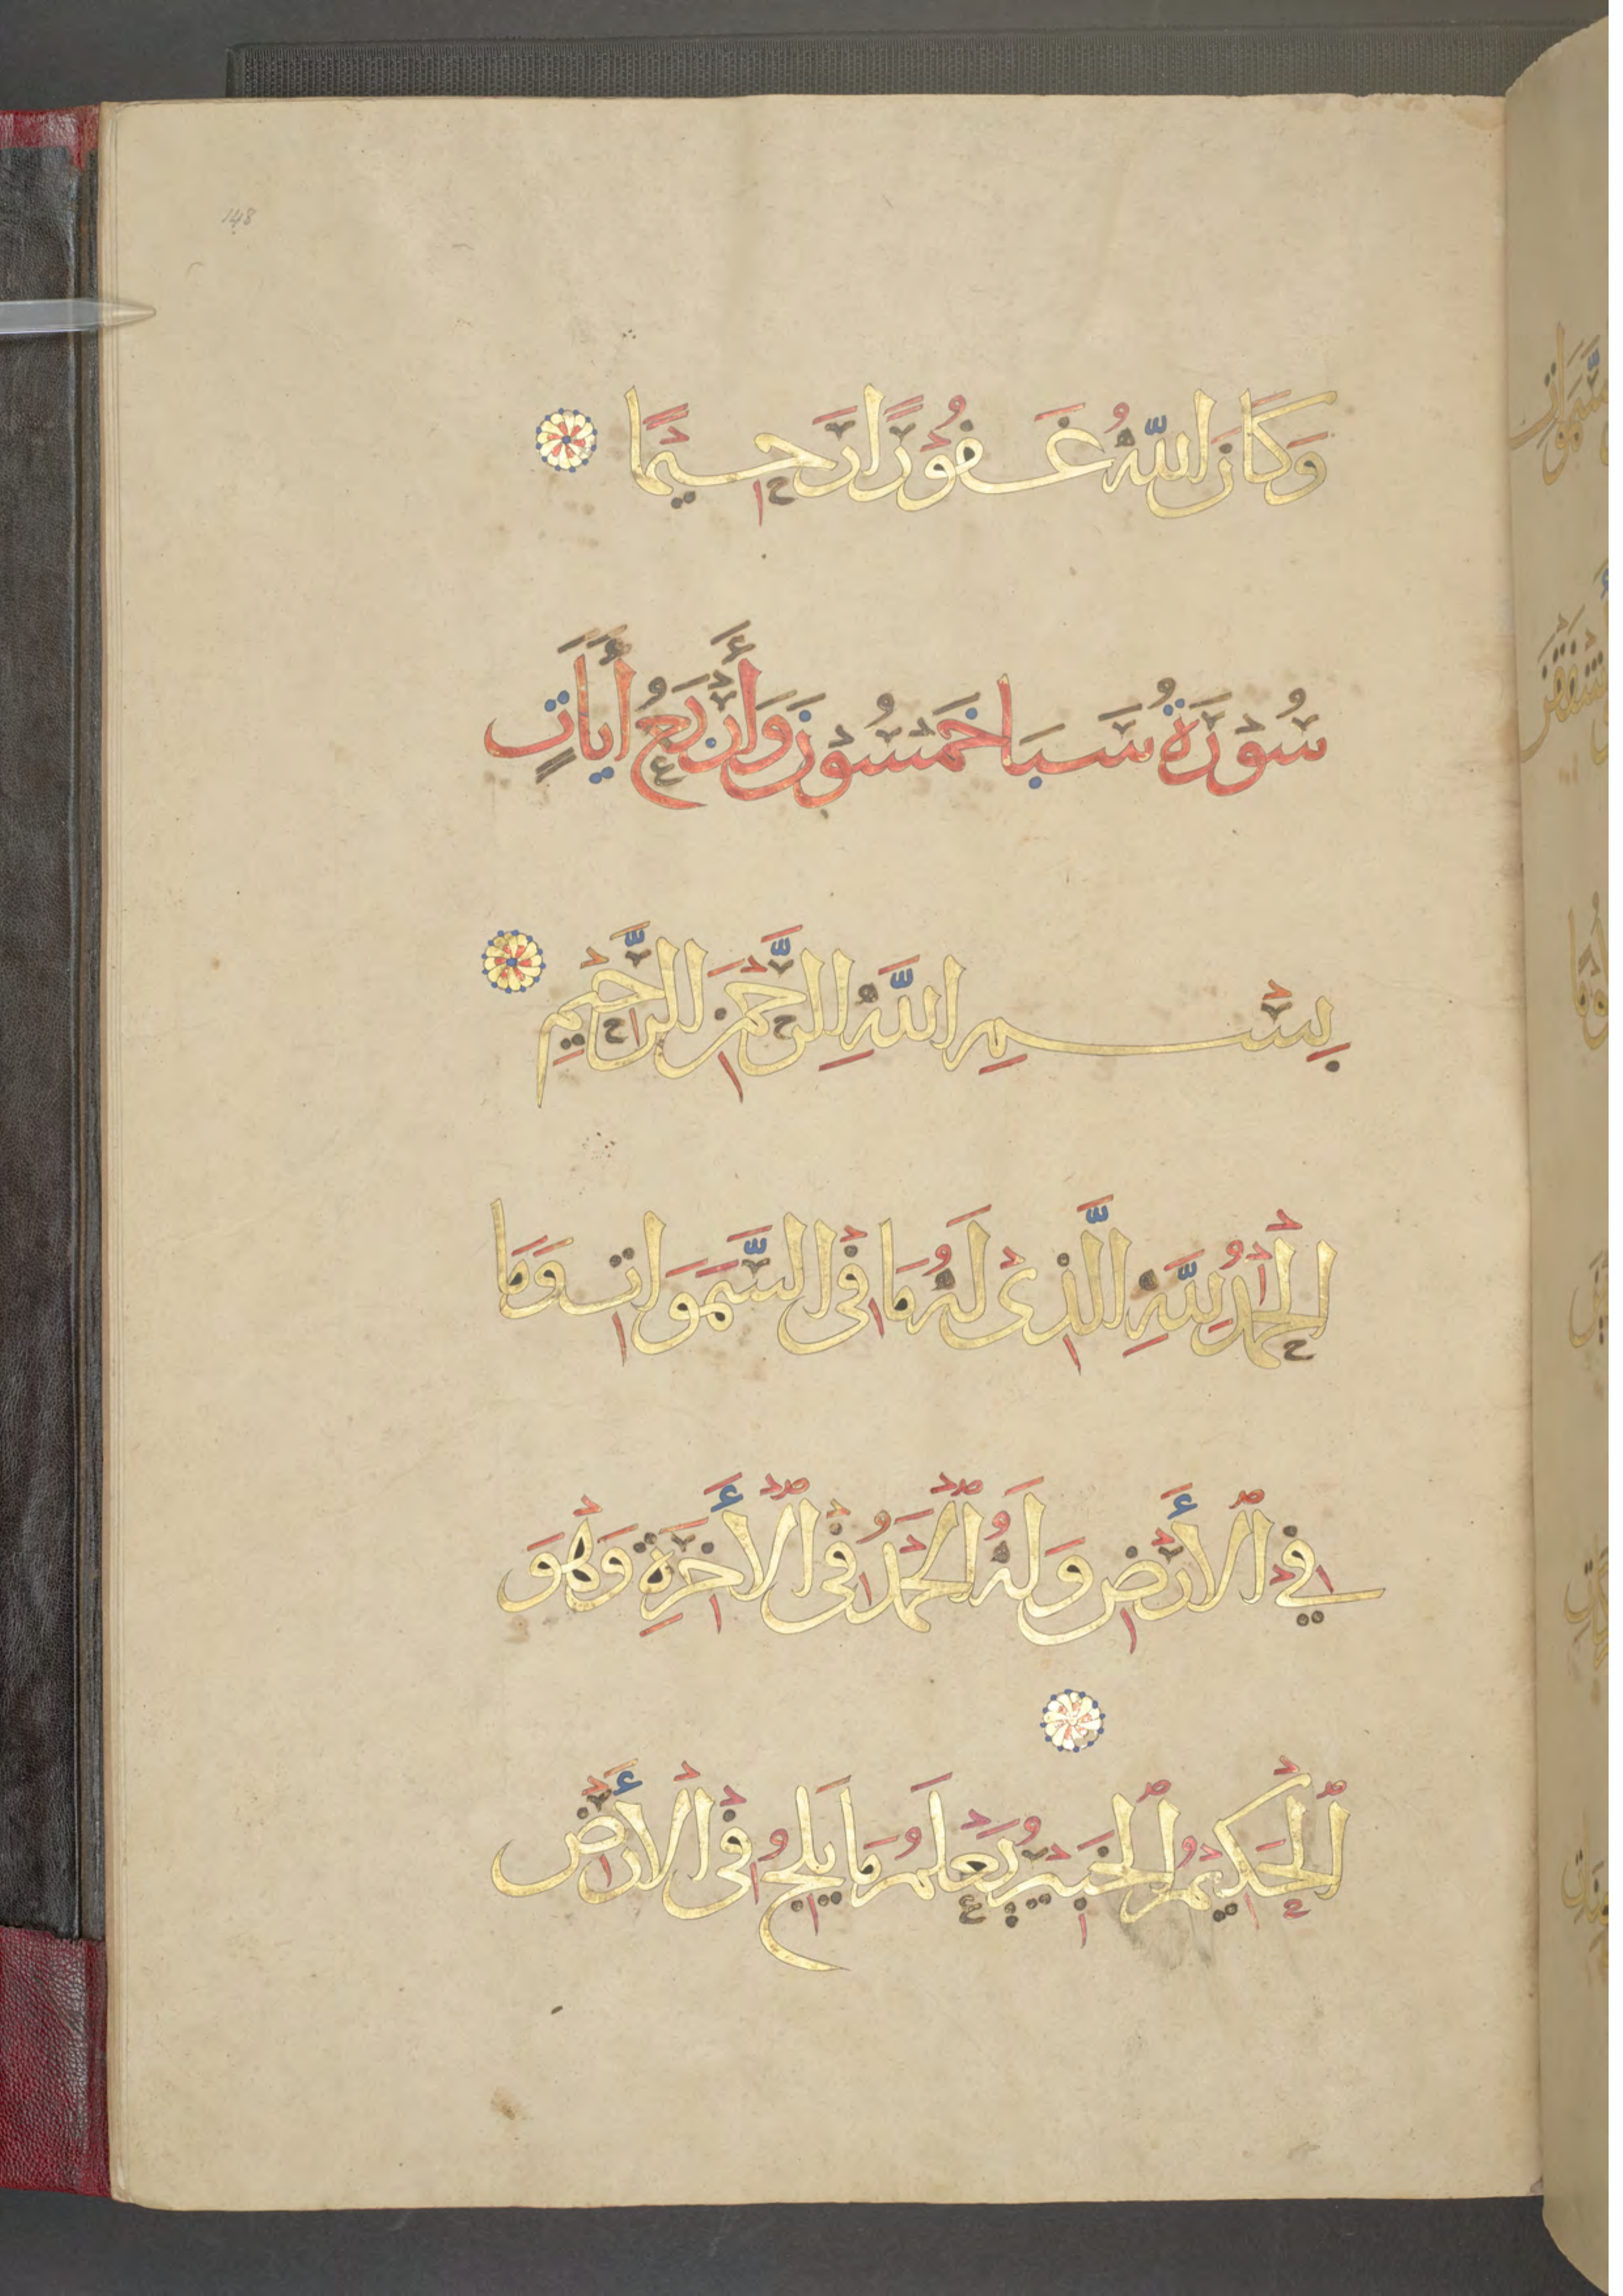 148
وَكَانَ اللّٰهُ غَفُوْرًا رَحِيْمًا
سُوْرَةُ سَبَا خَمْسُوْنَ وَأَرْبَعُ أَيَاتٍ
بِسْمِ اللّٰهِ الرَّحْمٰنِ الرَّحِيْمِ
اَلْحَمْدُ لِلّٰهِ الَّذِىْ لَهُ مَا فِى السَّمَوَاتِ وَمَا
فِي الْأَرْضِ وَلَهُ الْحَمْدُ فِى الْأَخِرَةِ وَهْوَ
الْحَكِيْمُ الْخَبِيْرُ يَعْلَمُ مَا يَلِجُ فِى الْأَرْضِ